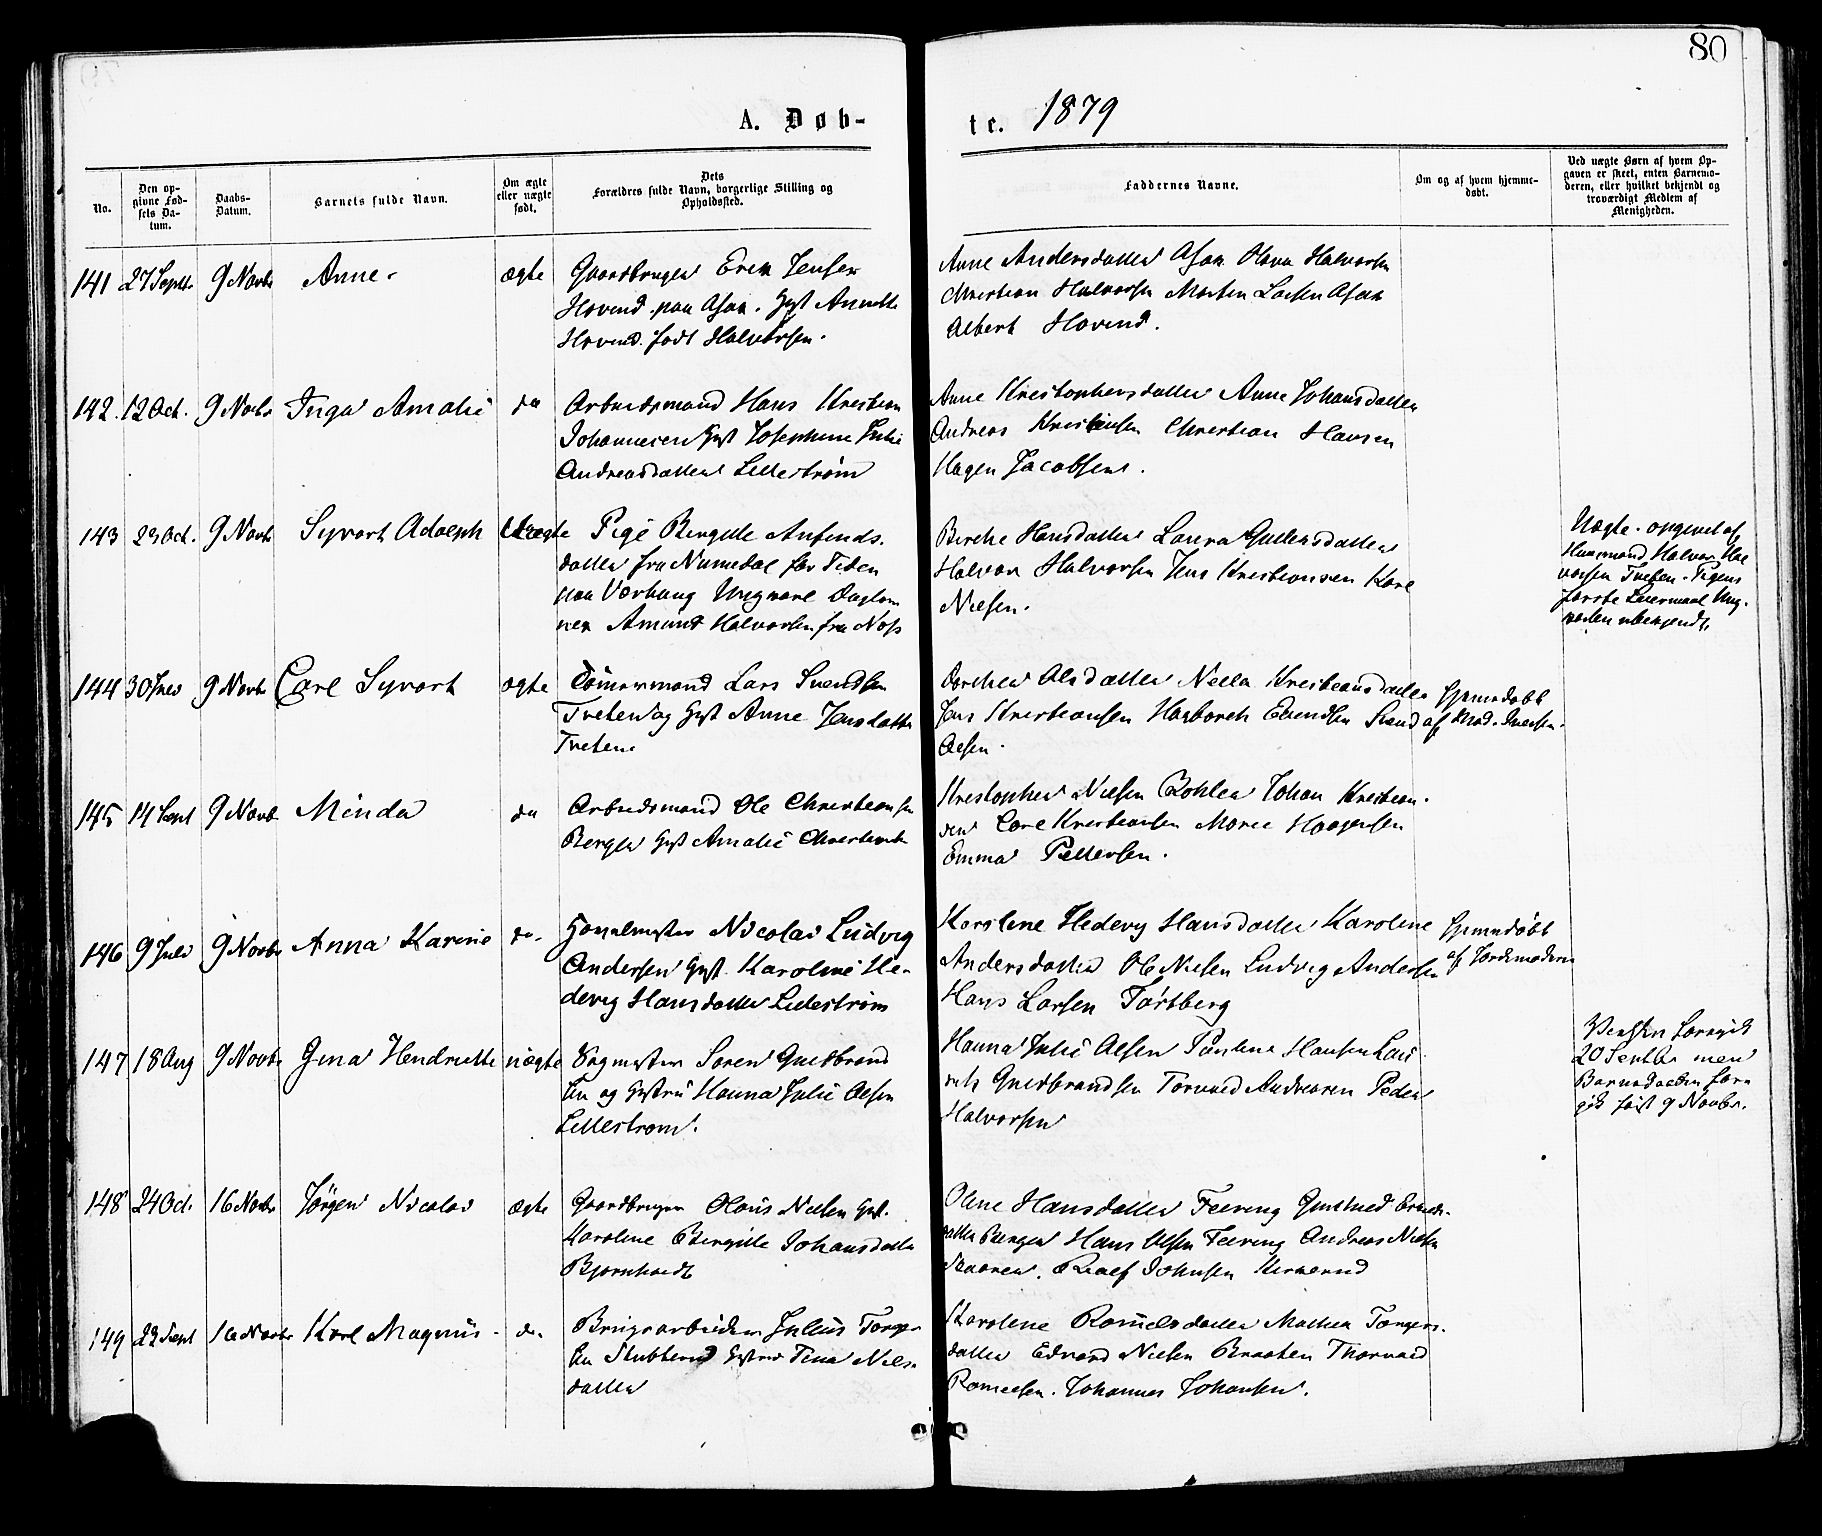 80
A. Døb-
te. 1879
No.
Den op-
givne Fød-
sels Da-
tum.
Daabs-
Datum.
Barnets fulde Navn.
Om ægte
eller uægte
født.
Dets
Forældres fulde Navn, borgerlige Stilling og
Opholdssted.
Faddernes Navne.
Om og af hvem hjemme-
døbt.
Ved uægte Børn af hvem Op-
gaven er skeet, enten Barnemo-
deren, eller hvilket bekjendt og
troværdigt Medlem af
Menigheden.
141 27 Septr. 9 Novbr Anne ægte Gaardbruger Even Jensen
Hovind paa Asak. Gst Annette
Hovind født Halvorsen.
Anne Andersdatter Asak Halvorsen
Christian Halvorsen Morten Larsen Asak
Albert Hovind.
142. 12 Oct. 9 Novbr Inga Amalie do Arbeidsmand Hans Kristian
Johannesen Gst Josephine Julie
Andreasdatter Lillestrøm
Anne Kristophersdatter Anne Johansdatter
Andreas Kristiansen Christian Hansen
Hagen Jacobsen.
143 23 Oct. 9 Novbr Syvart Adolph Uægte Pige Bergitte Anfinds.
datter fra Numedal for Tiden
paa Værhaug Ungkarl Dagløn
ner Amund Halvorsen fra Næs
Birthe Hansdatter Laura Gulliksdatter
Halvor Halvorsen Jens Kristiansen Karl
Nilsen.
Uægte. opgivet af
Huusmand Halvor Hal
vorsen Tveten. Pigens
første Leiermaal Ung-
karlen ubekjendt.
144 30 9 Novbr Carl Syvart ægte Tømmermand Lars Svendsen
Tveten og Gst Anne Jensdatter
Tveten
Dorthea Olsdatter Nella Kristiansdatter
Jens Kristiansen Hasborek Evendsen Svend
Olsen.
Hjemmedøbt
af Mad. Iversen.
145 14 Sept 9 Novbr Minda do Arbeidsmand Ole Christiansen
Berger Gst Amalie
Kristopher Nilsen Bøhler Johan Kristian.
sen Carl Kristiansen Marie Haagensen
Emma Pettersen.
146 9 Juli 9 Novbr Anna Karine do. Høvelmester Nicolai Ludvig
Andersen Gst. Karoline He-
devig Hansdatter Lillestrøm
Karoline Hedevig Hansdatter Karoline
Andersdatter Ole Nilsen Ludvig Andersen
Hans Larsen Tørtberg
Hjemmedøbt
af Jordemoderen
147 18 Aug 9 Novbr Gina Hendriette uægte Sagmester Søren Guldbrand
sen og Hustru Hanna Julie Olsen
Lillestrøm.
Hanna Julie Olsen Pauline Hansen Lau
rits Guldbrandsen Torvald Andreasen Peder
Halvorsen
Vielsen foregik
20 Septbr men
Barnedaaben fore
gik først 9 Novbr.
148 24 Oct. 16 Novbr Jørgen Nicolai ægte Gaardbruger Olaus Nilsen Gst.
Karoline Bergitte Johansdatter
Bjørnholdt
Oline Hansdatter Feiring Gunhild Eriks-
datter Berger Hans Olsen Feiring Andreas Nilsen
Skaaren. Rolf Johnsen Kirkerud
149 22 Sept 16 Novbr Karl Magnus do. Brugsarbeider Julius Torger
sen Stubberud Hustru Tina Nils-
datter
Karoline Romelsdatter Mathea Torgers-
datter Edvard Nilsen Braaten Thorvald
Romelsen. Johannes Johansen.